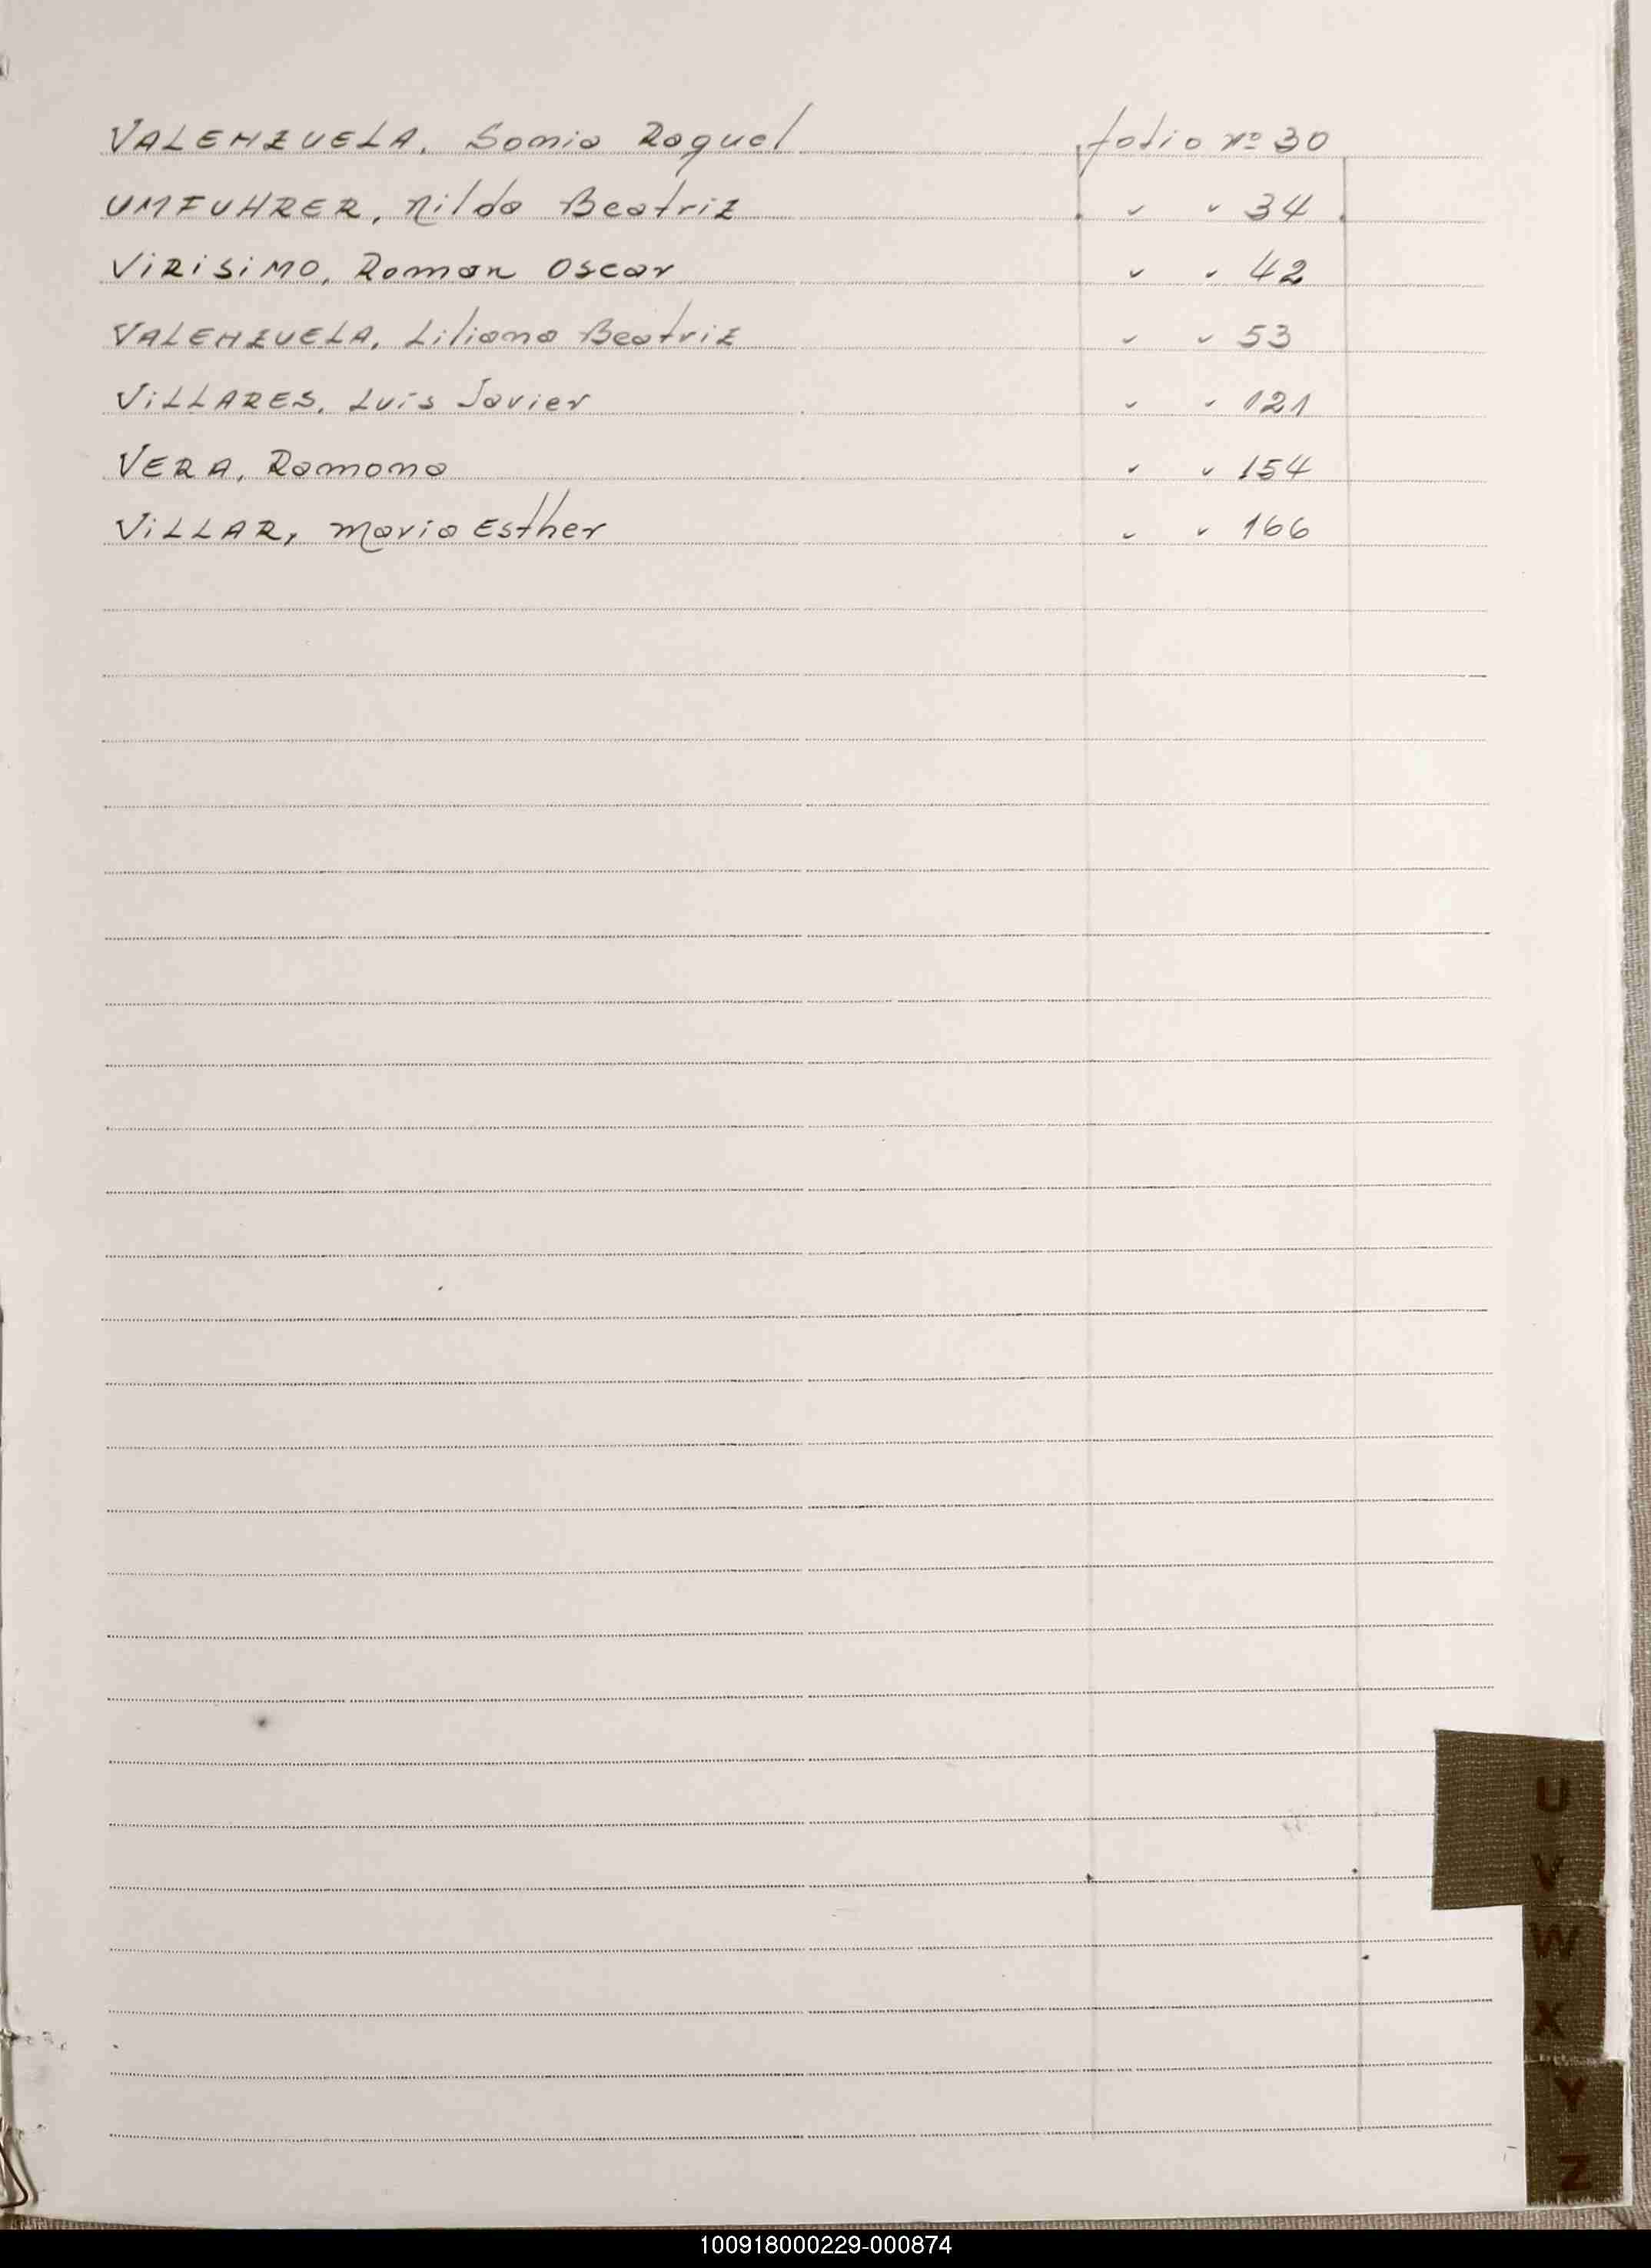 VALENZUELA, Sonia Raquel folio nº 30
UMFUHRER, Nilda Beatriz " " 34
ViRiSiMO, Roman Oscar " " 42
VALENZUELA, Liliana Beatriz " " 53
ViLLARES, Luis Javier " " 121
VERA, Ramona " " 154
ViLLAR, Maria Esther " " 166
U
V
W
X
Y
Z
100918000229-000874